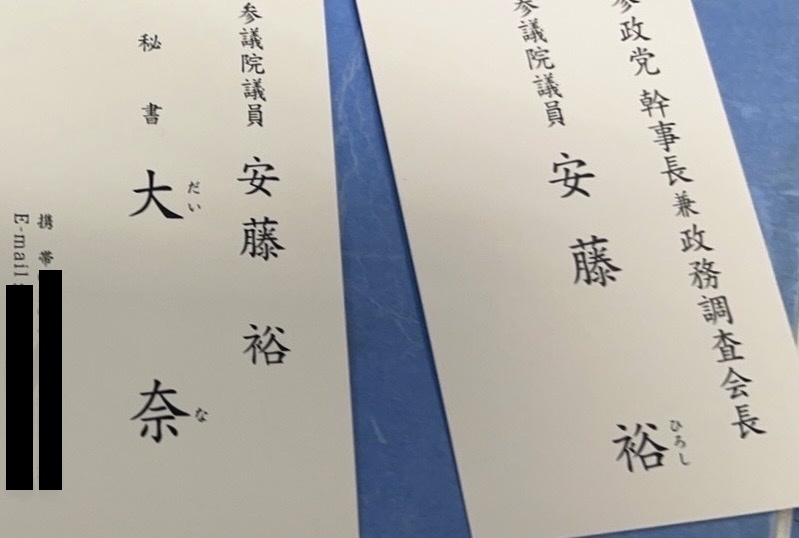 参政党 幹事長兼政務調査会長
参議院議員
安藤 裕
ひろし
参議院議員 安藤 裕
秘書
大 奈
だい な
携帯
E-mail: